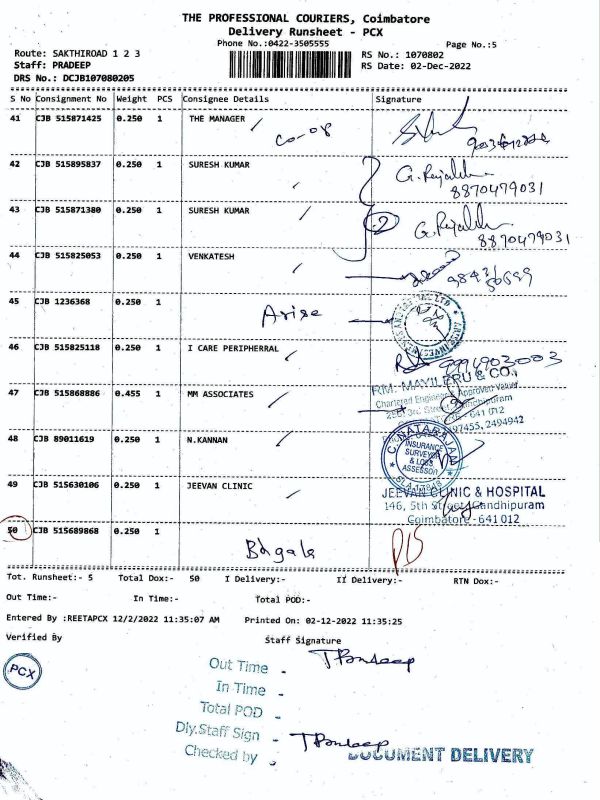 THE PROFESSIONAL COURIERS, Coimbatore
Delivery Runsheet - PCX
Phone No.:0422-3505555
Page No.:5
Route: SAKTHIROAD 1 2 3
RS No.: 1070802
Staff: PRADEEP
RS Date: 02-Dec-2022
DRS No.: DCJB107080205
S No Consignment No Weight PCS Consignee Details Signature
41 CJB 515871425 0.250 1 THE MANAGER
co-op
42 CJB 515895837 0.250 1 SURESH KUMAR
8870479031
43 CJB 515871380 0.250 1 SURESH KUMAR
2
8870479031
44 CJB 515825053 0.250 1 VENKATESH
45 CJB 1236368 0.250 1
Arise
46 CJB 515825118 0.250 1 I CARE PERIPHERRAL
RM. MAYILERU & CO.,
47 CJB 515868886 0.455 1 MM ASSOCIATES
Chartered Engineer & Approved Valuer
3rd Street, Gandhipuram
641 012
97455, 2494942
48 CJB 89011619 0.250 1 N.KANNAN
C. NATARAJAN
INSURANCE
SURVEYOR
& LOSS
ASSESSOR
49 CJB 515630106 0.250 1 JEEVAN CLINIC
JEEVAN CLINIC & HOSPITAL
146, 5th Street, Gandhipuram
Coimbatore - 641 012
50 CJB 515689868 0.250 1
Tot. Runsheet:- 5 Total Dox:- 50 I Delivery:- II Delivery:- RTN Dox:-
Out Time:- In Time:- Total POD:-
Entered By :REETAPCX 12/2/2022 11:35:07 AM Printed On: 02-12-2022 11:35:25
Verified By Staff Signature
PCX
Out Time -
In Time -
Total POD -
Dly.Staff Sign -
Checked by -
DOCUMENT DELIVERY